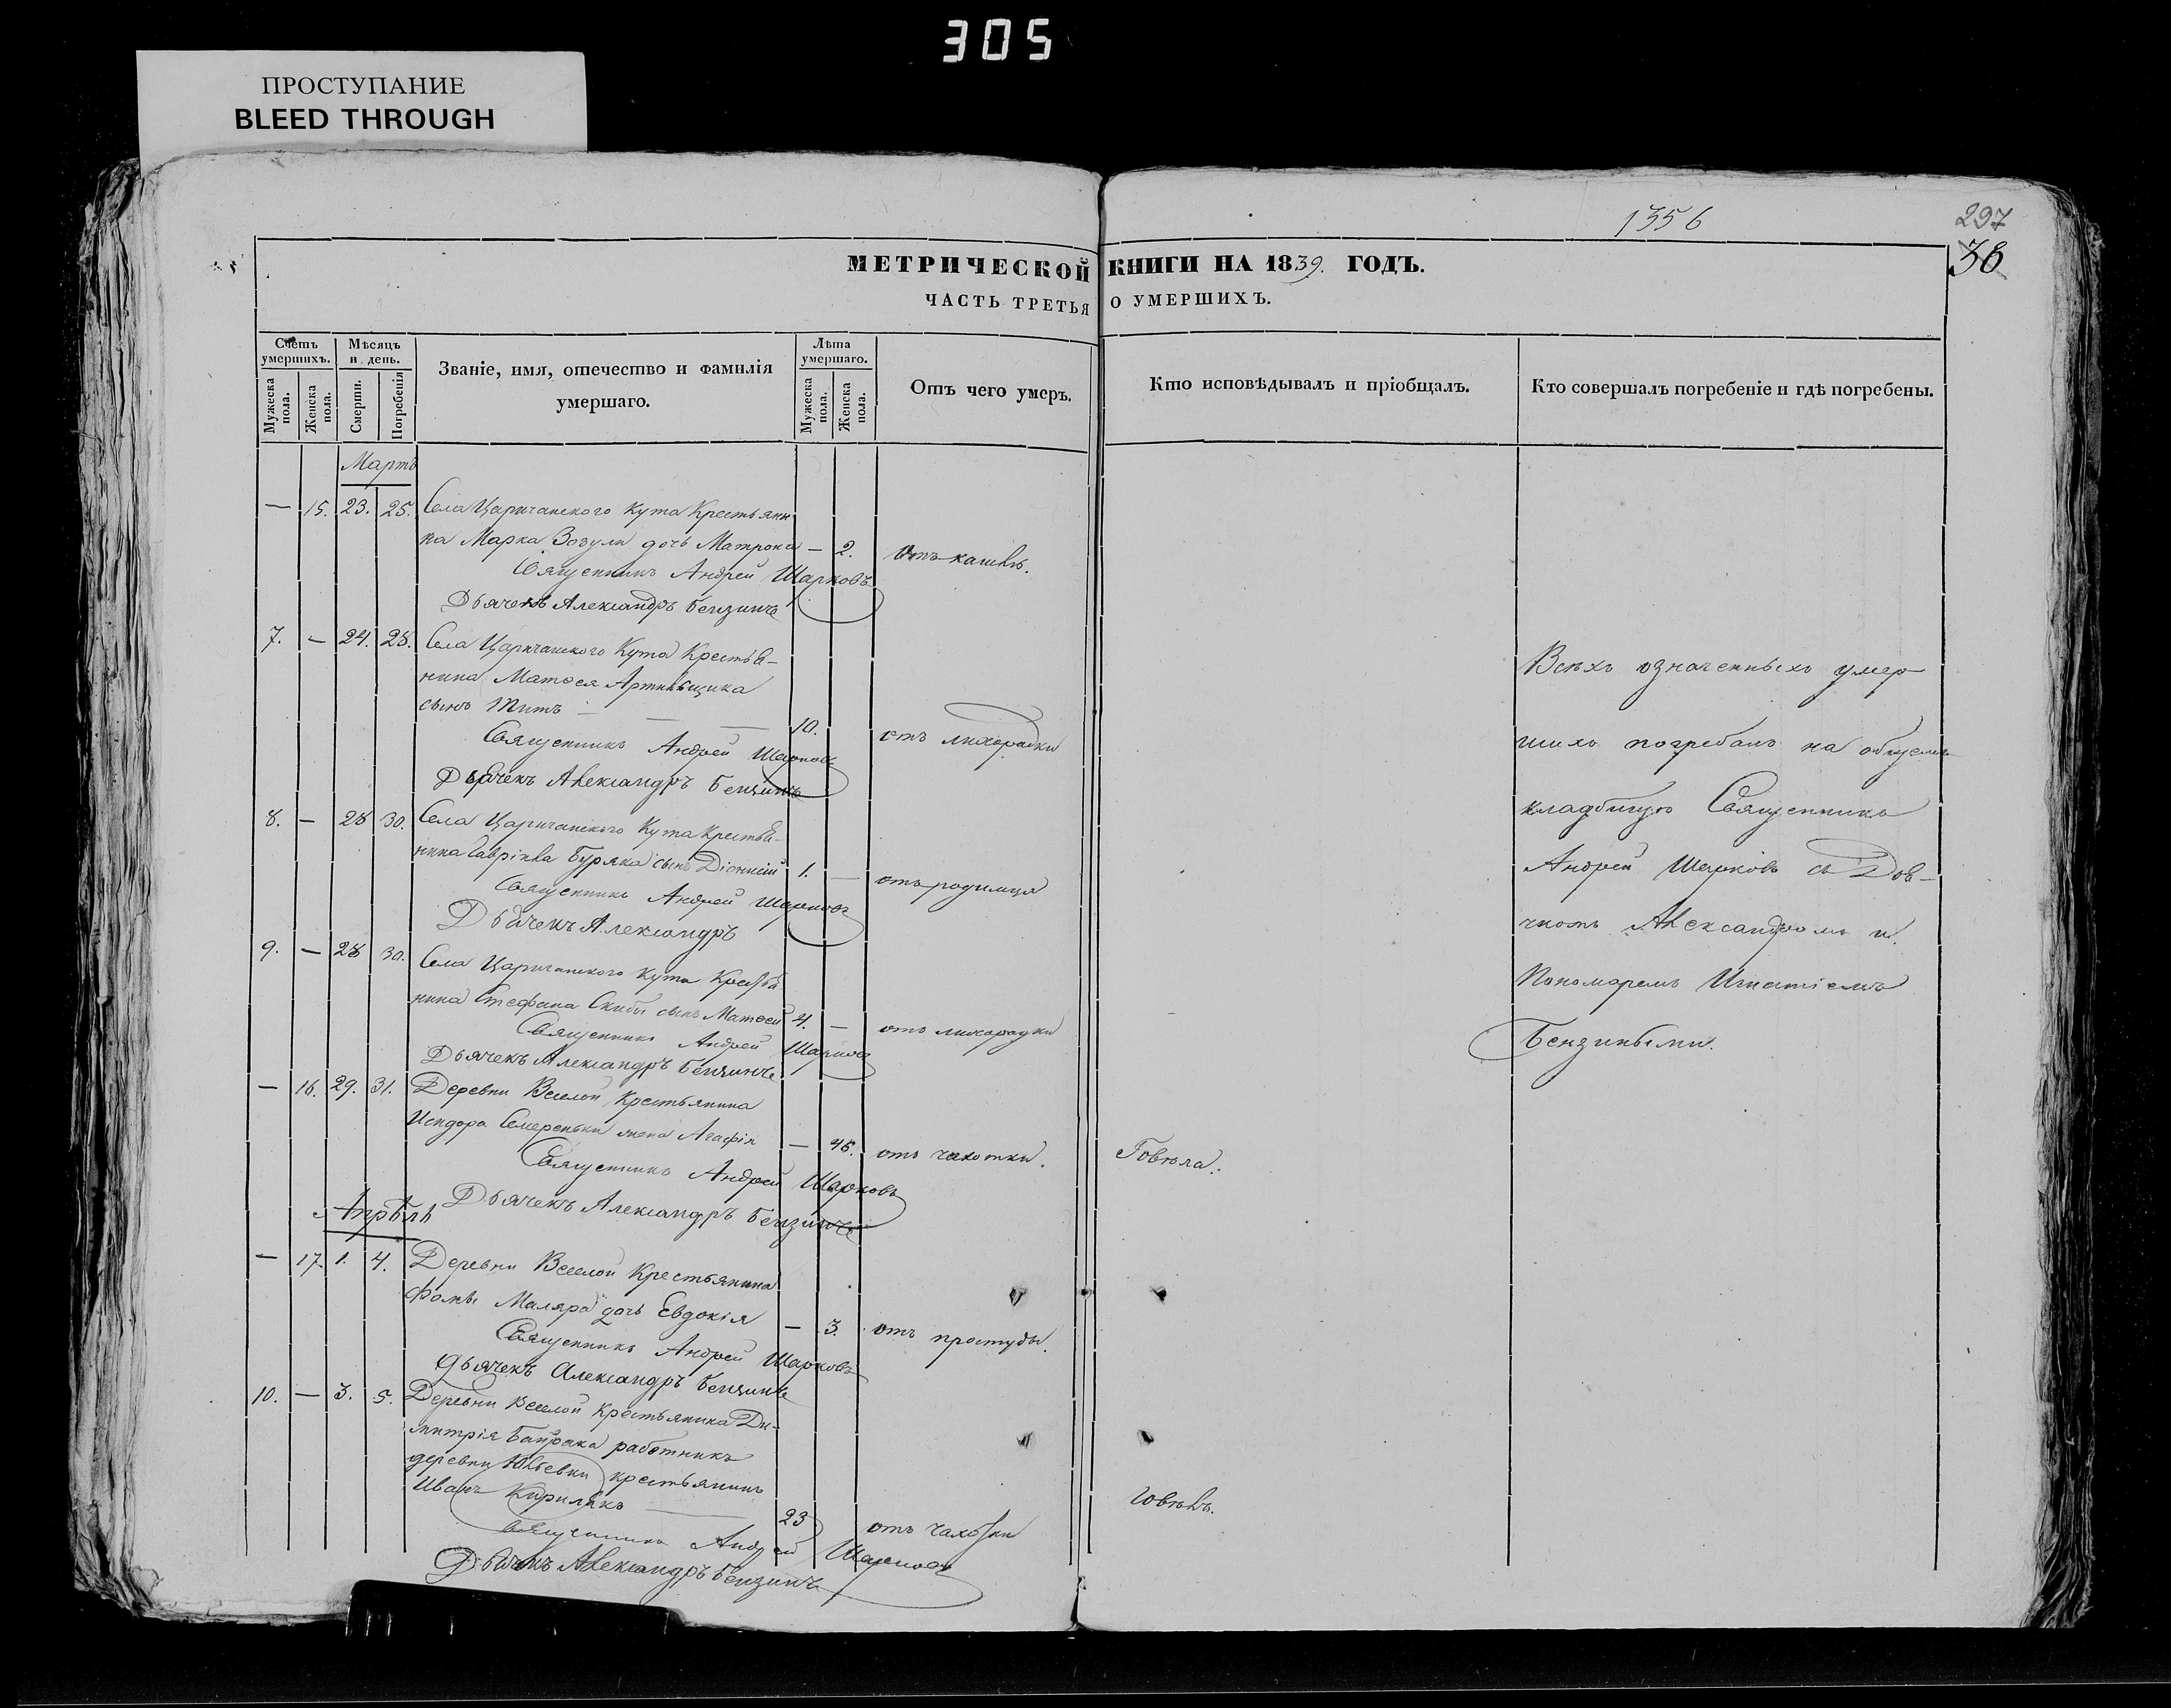 305
ПРОСТУПАНИЕ
BLEED THROUGH
1356
297
36
МЕТРИЧЕСКОЙ КНИГИ НА 1839. ГОДЪ.
ЧАСТЬ ТРЕТЬЯ О УМЕРШИХЪ.
Счетъ умершихъ.
Мѣсяцъ и день.
Званіе, имя, отечество и фамилія умершаго.
Лѣта умершаго.
Отъ чего умеръ.
Кто исповѣдывалъ и пріобщалъ.
Кто совершалъ погребеніе и гдѣ погребены.
Мужеска пола.
Женска пола.
Смерти.
Погребенія
Мужеска пола.
Женска пола.
Мартъ
— 15. 23. 25. Села Царичанского Кута Крестьяни
на Марка Зозули дочь Матрона — 2. Отъ кашлѣ.
Священникъ Андрей Шарковъ
Дьячекъ Александръ Бензинъ
7. — 24. 28. Села Царичанского Кута Крестья-
нина Матѳея
сынъ Титъ — 10. отъ лихорадки
Священникъ Андрей Шарковъ
Дьячекъ Александръ Бензинъ
8. — 28 30. Села Царичанского Кута Крестья-
нина Гавріила Буряка сынъ Діонисій 1. — отъ родимца
Священникъ Андрей Шарковъ
Дьячекъ Александръ
9. — 28 30. Села Царичанского Кута Крестья
нина Стефана Скибы сынъ Матѳей 4. — отъ лихорадки
Священникъ Андрей Шарковъ
Дьячекъ Александръ Бензинъ
— 16. 29. 31. Деревни Веселой Крестьянина
Исидора Семереньки жена Агафія — 45. отъ чахотки. Говѣла.
Священникъ Андрей Шарковъ
Дьячекъ Александръ Бензинъ
Апрѣль
— 17. 1. 4. Деревни Веселой Крестьянина
Фомы Маляра дочь Евдокія — 3. отъ простуды.
Священникъ Андрей Шарковъ
Дьячекъ Александръ Бензинъ
10. — 3. 5. Деревни Веселой Крестьянина Ди-
митрія Байрака работникъ
деревни крестьянинъ
Иванъ Кирилякъ 23 отъ чахотки говѣлъ.
Священникъ Андрей Шарковъ
Дьячекъ Александръ Бензинъ
Всѣхъ означенныхъ умер
шихъ погребалъ на общемъ
кладбищѣ Священникъ
Андрей Шарковъ съ
Александромъ и.
Пономаремъ Игнатіемъ
Бензиными.